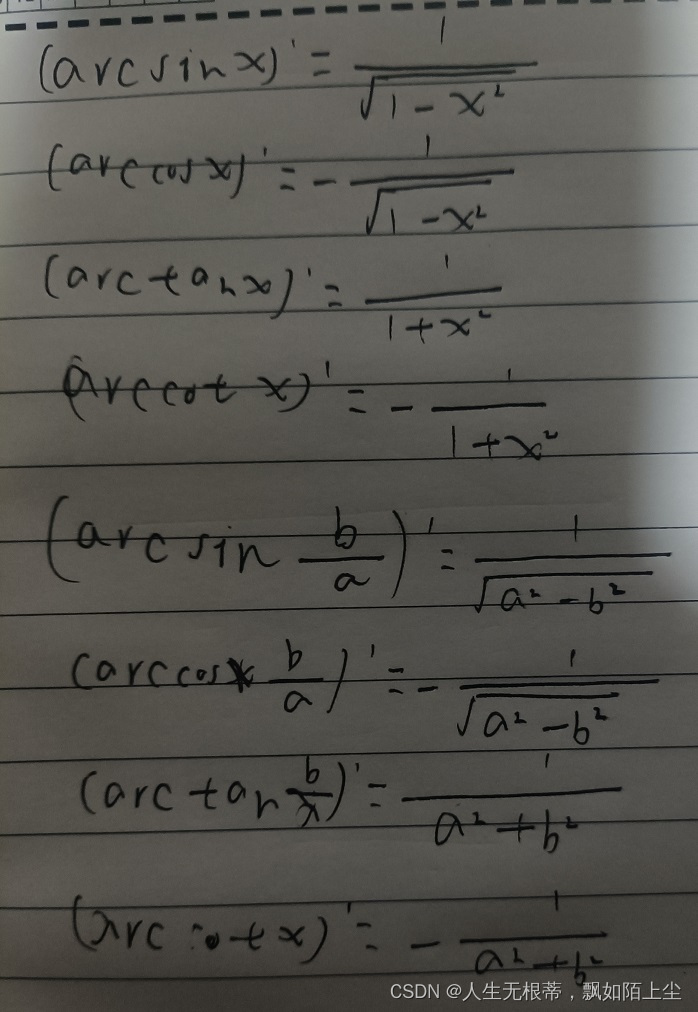 (arcsinx)' = 1/√(1-x²)
(arccosx)' = -1/√(1-x²)
(arctanx)' = 1/(1+x²)
(arccot x)' = -1/(1+x²)
(arcsin b/a)' = 1/√(a²-b²)
(arccos b/a)' = -1/√(a²-b²)
(arctan b/x)' = 1/(a²+b²)
(arccotx)' = -1/(a²+b²)
CSDN @人生无根蒂，飘如陌上尘